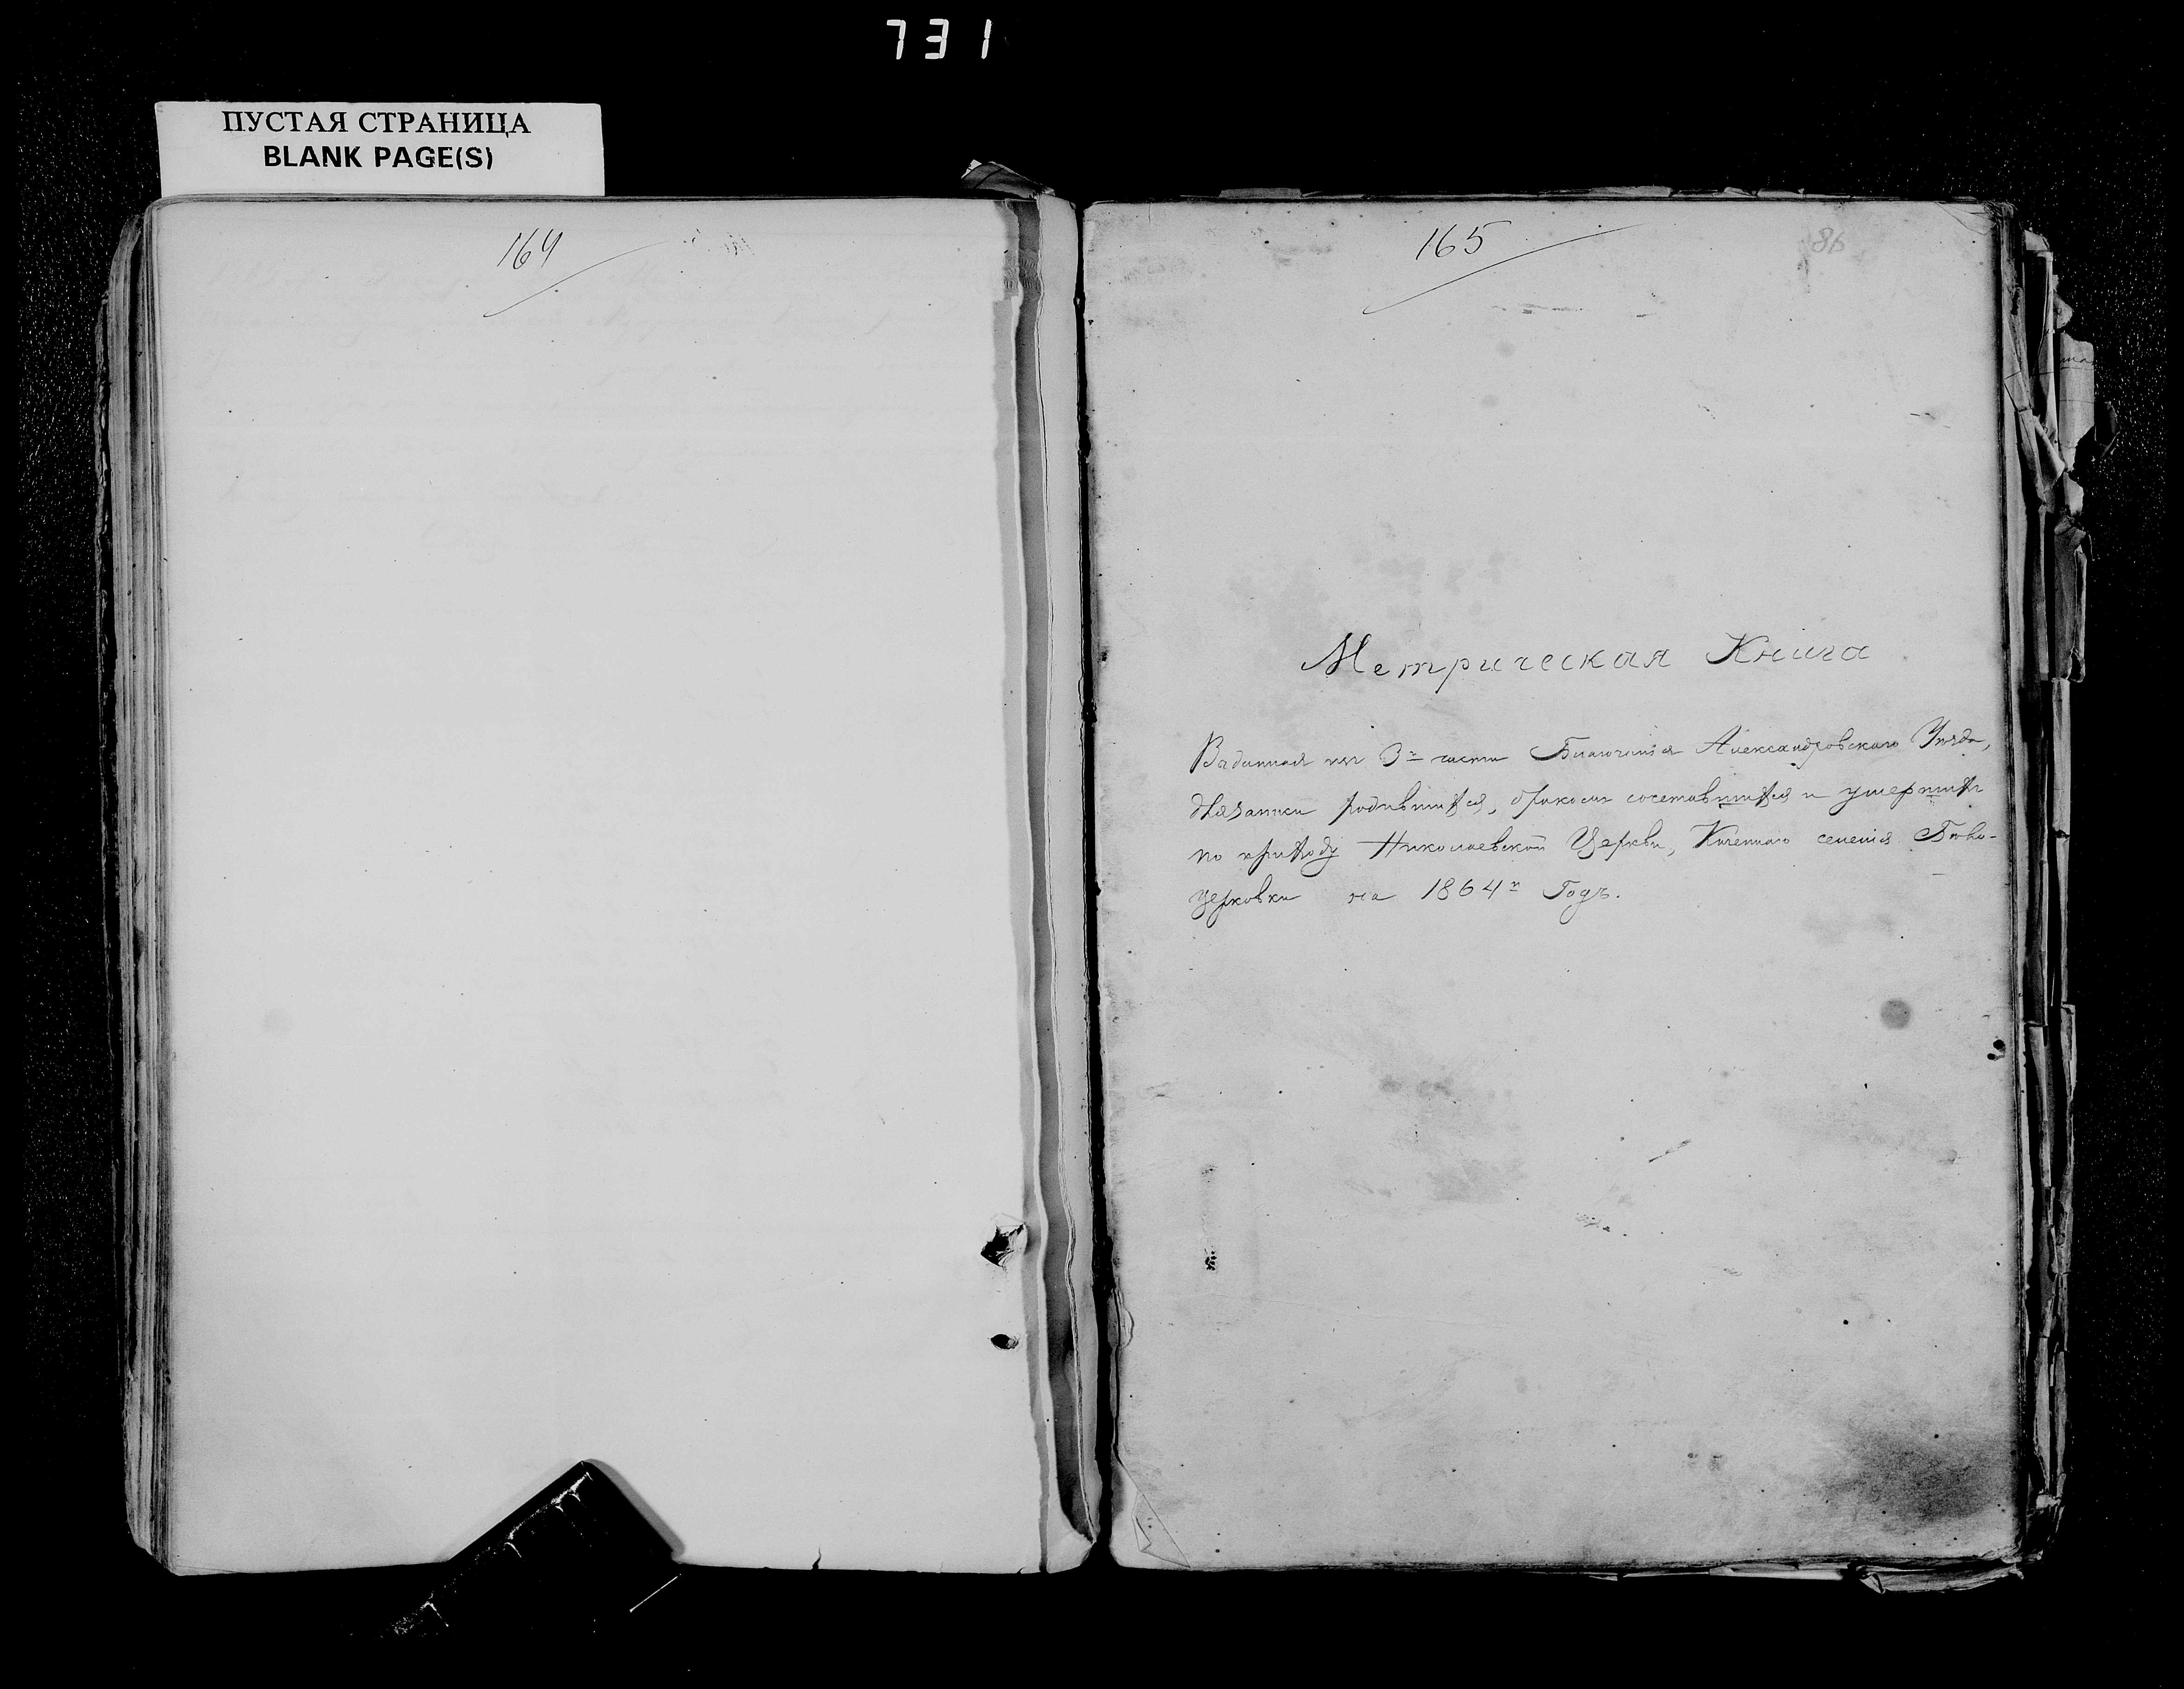 731
ПУСТАЯ СТРАНИЦА
BLANK PAGE(S)
164
165
86
Метрическая Книга
Выданная изъ 3й части Благочинія Александровскаго Уѣзда,
для записи родившихся, бракомъ сочетавшихся и умершихъ
по приходу Николаевской Церкви, Казеннаго селенія Бѣло-
церковки на 1864й Годъ.